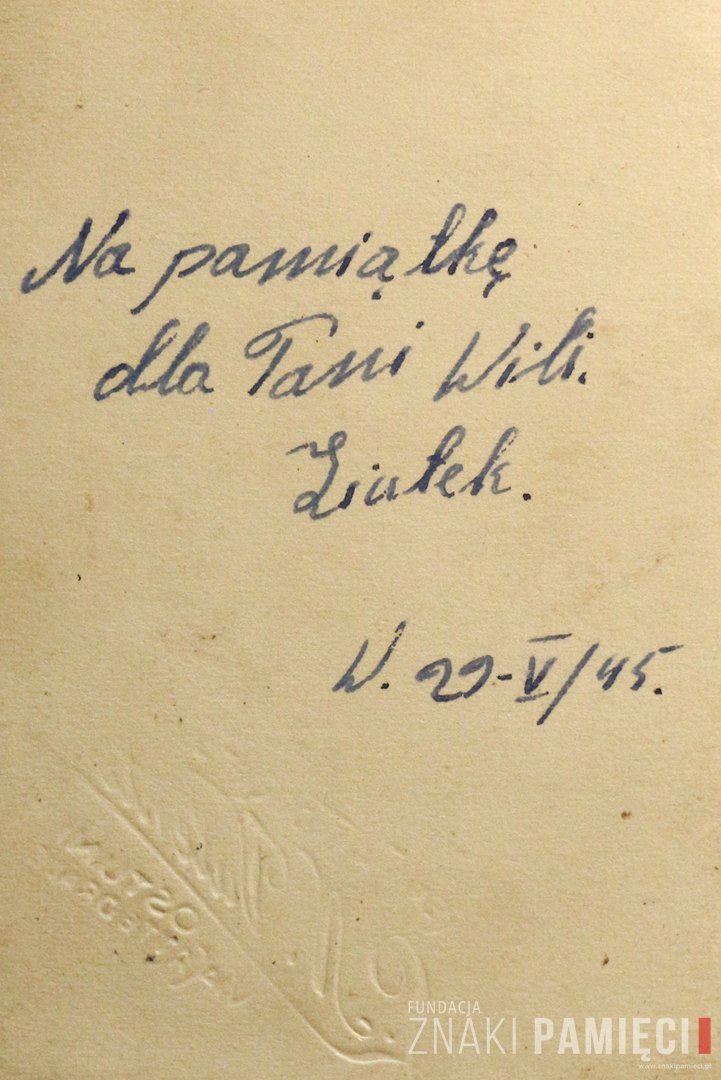 Na pamiątkę
dla Pani Wili.
Ziutek.
W. 29-V/45.
FUNDACJA
ZNAKI PAMIĘCI
www.znakipamieci.pl